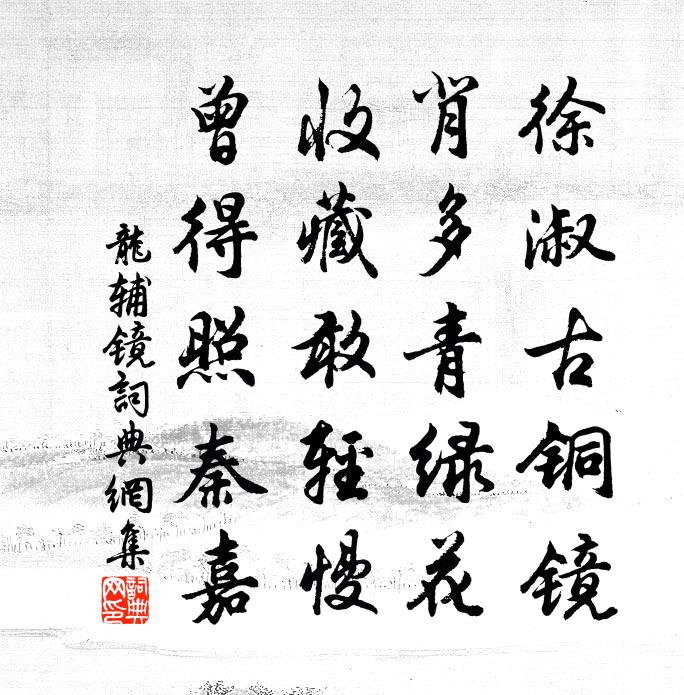 徐淑古铜镜
背多青绿花
收藏敢轻慢
曾得照秦嘉
龍辅镜詞典網集
詞典网印